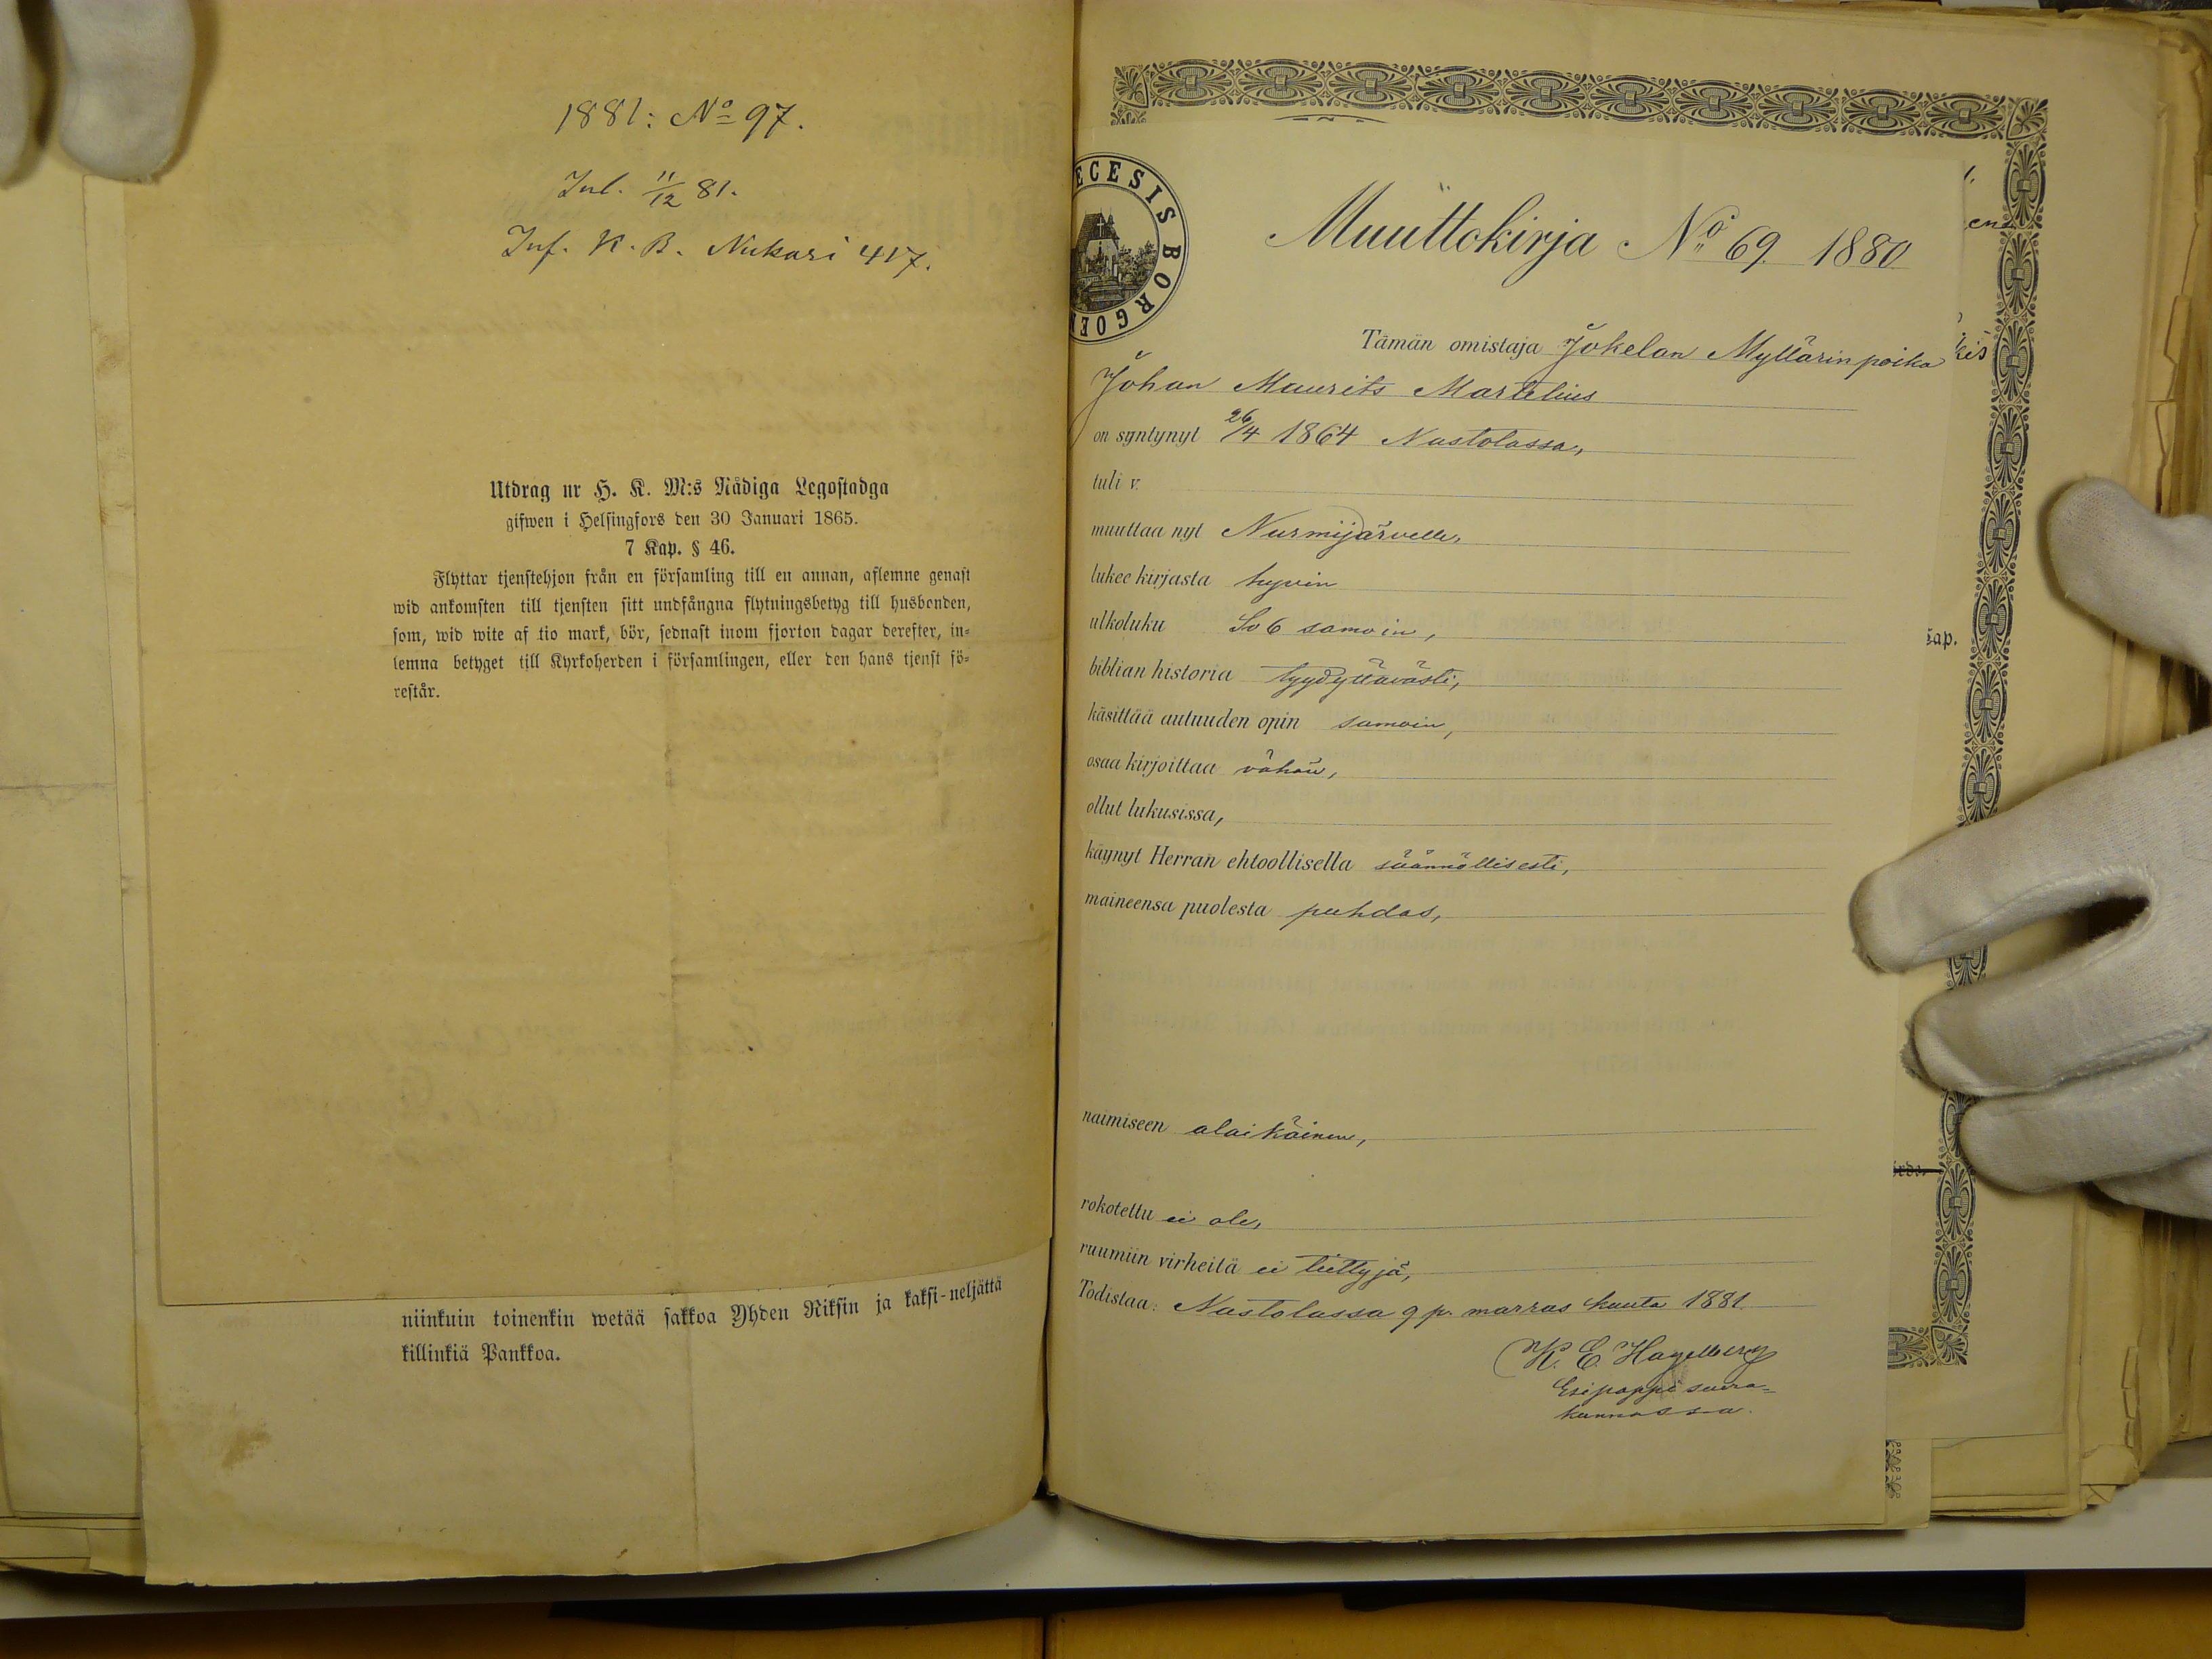 1881: No 97.
Inl. 11/12 81.
Inf. K. B. Nukari 417.
Utdrag ur H. K. M:s Nådiga Legostadga
gifwen i Helsingfors den 30 Januari 1865.
7 Kap. § 46.
Flyttar tjenstehjon från en församling till en annan, aflemne genast
wid ankomsten till tjensten sitt undfångna flytningsbetyg till husbonden,
som, wid wite af tio mark, bör, sednast inom fjorton dagar derefter, in=
lemna betyget till Kyrkoherden i församlingen, eller den hans tjenst fö=
restår.
niinkuin toinenkin wetää sakkoa Yhden Riksin ja kaksi-neljättä
killinkiä Pankkoa.
ECESIS BORGOEN
Muuttokirja No 69. 1880
Tämän omistaja Jokelan Myllärin poika
Johan Maurits Martelius
on syntynyt 26/4 1864 Nastolassa,
tuli v.
muuttaa nyt Nurmijärvelle,
lukee kirjasta hyvin
ulkoluku Sv 6 samoin,
biblian historia tyydyttävästi,
käsittää autuuden opin samoin,
osaa kirjoittaa vähän,
ollut lukusissa,
käynyt Herran ehtoollisella säännöllisesti,
maineensa puolesta puhdas,
naimiseen alaikäinen,
rokotettu ei ole,
ruumiin virheitä ei tiettyjä,
Todistaa: Nastolassa 9 p. marras kuuta 1881.
K. E. Hagelberg
Esipappi seura=
kunnassa.
kap.